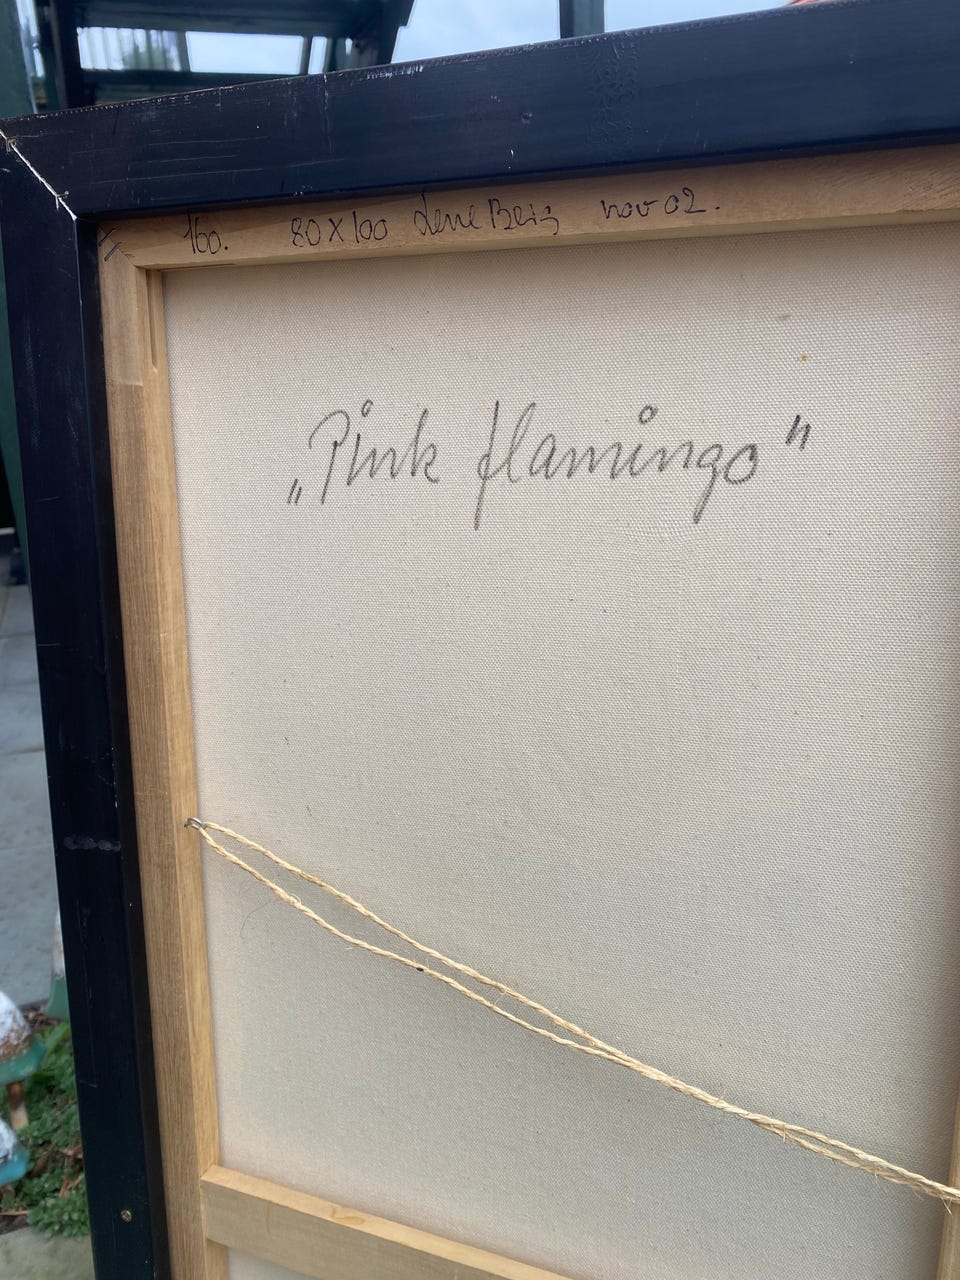 160. 80x100 Lene Beis nov 02.
„Pink flamingo"